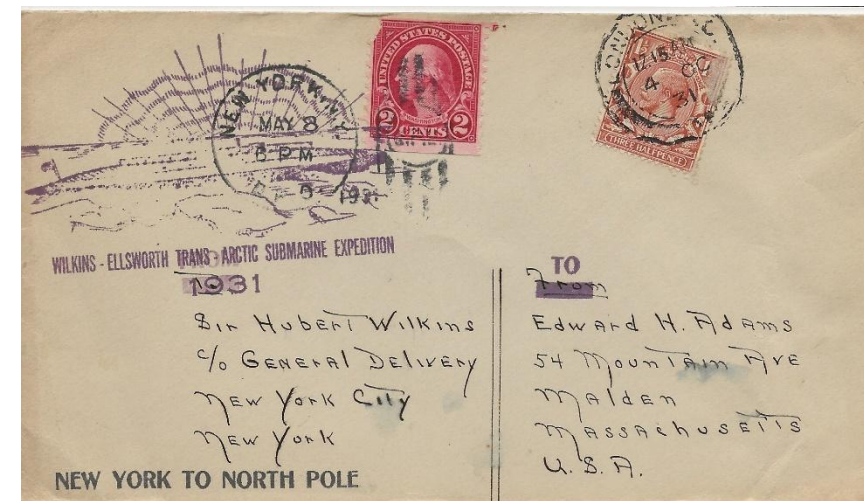 UNITED STATES POSTAGE
2 CENTS 2
NEW YORK, N.Y.
MAY 8
6 PM
1931
LONDON
12.15 AM
4
31
THREE HALFPENCE
WILKINS - ELLSWORTH TRANS - ARCTIC SUBMARINE EXPEDITION
1931
To
Sir Hubert Wilkins
c/o General Delivery
New York City
New York
NEW YORK TO NORTH POLE
TO
From
Edward H. Adams
54 Mountain Ave
Malden
Massachusetts
U.S.A.